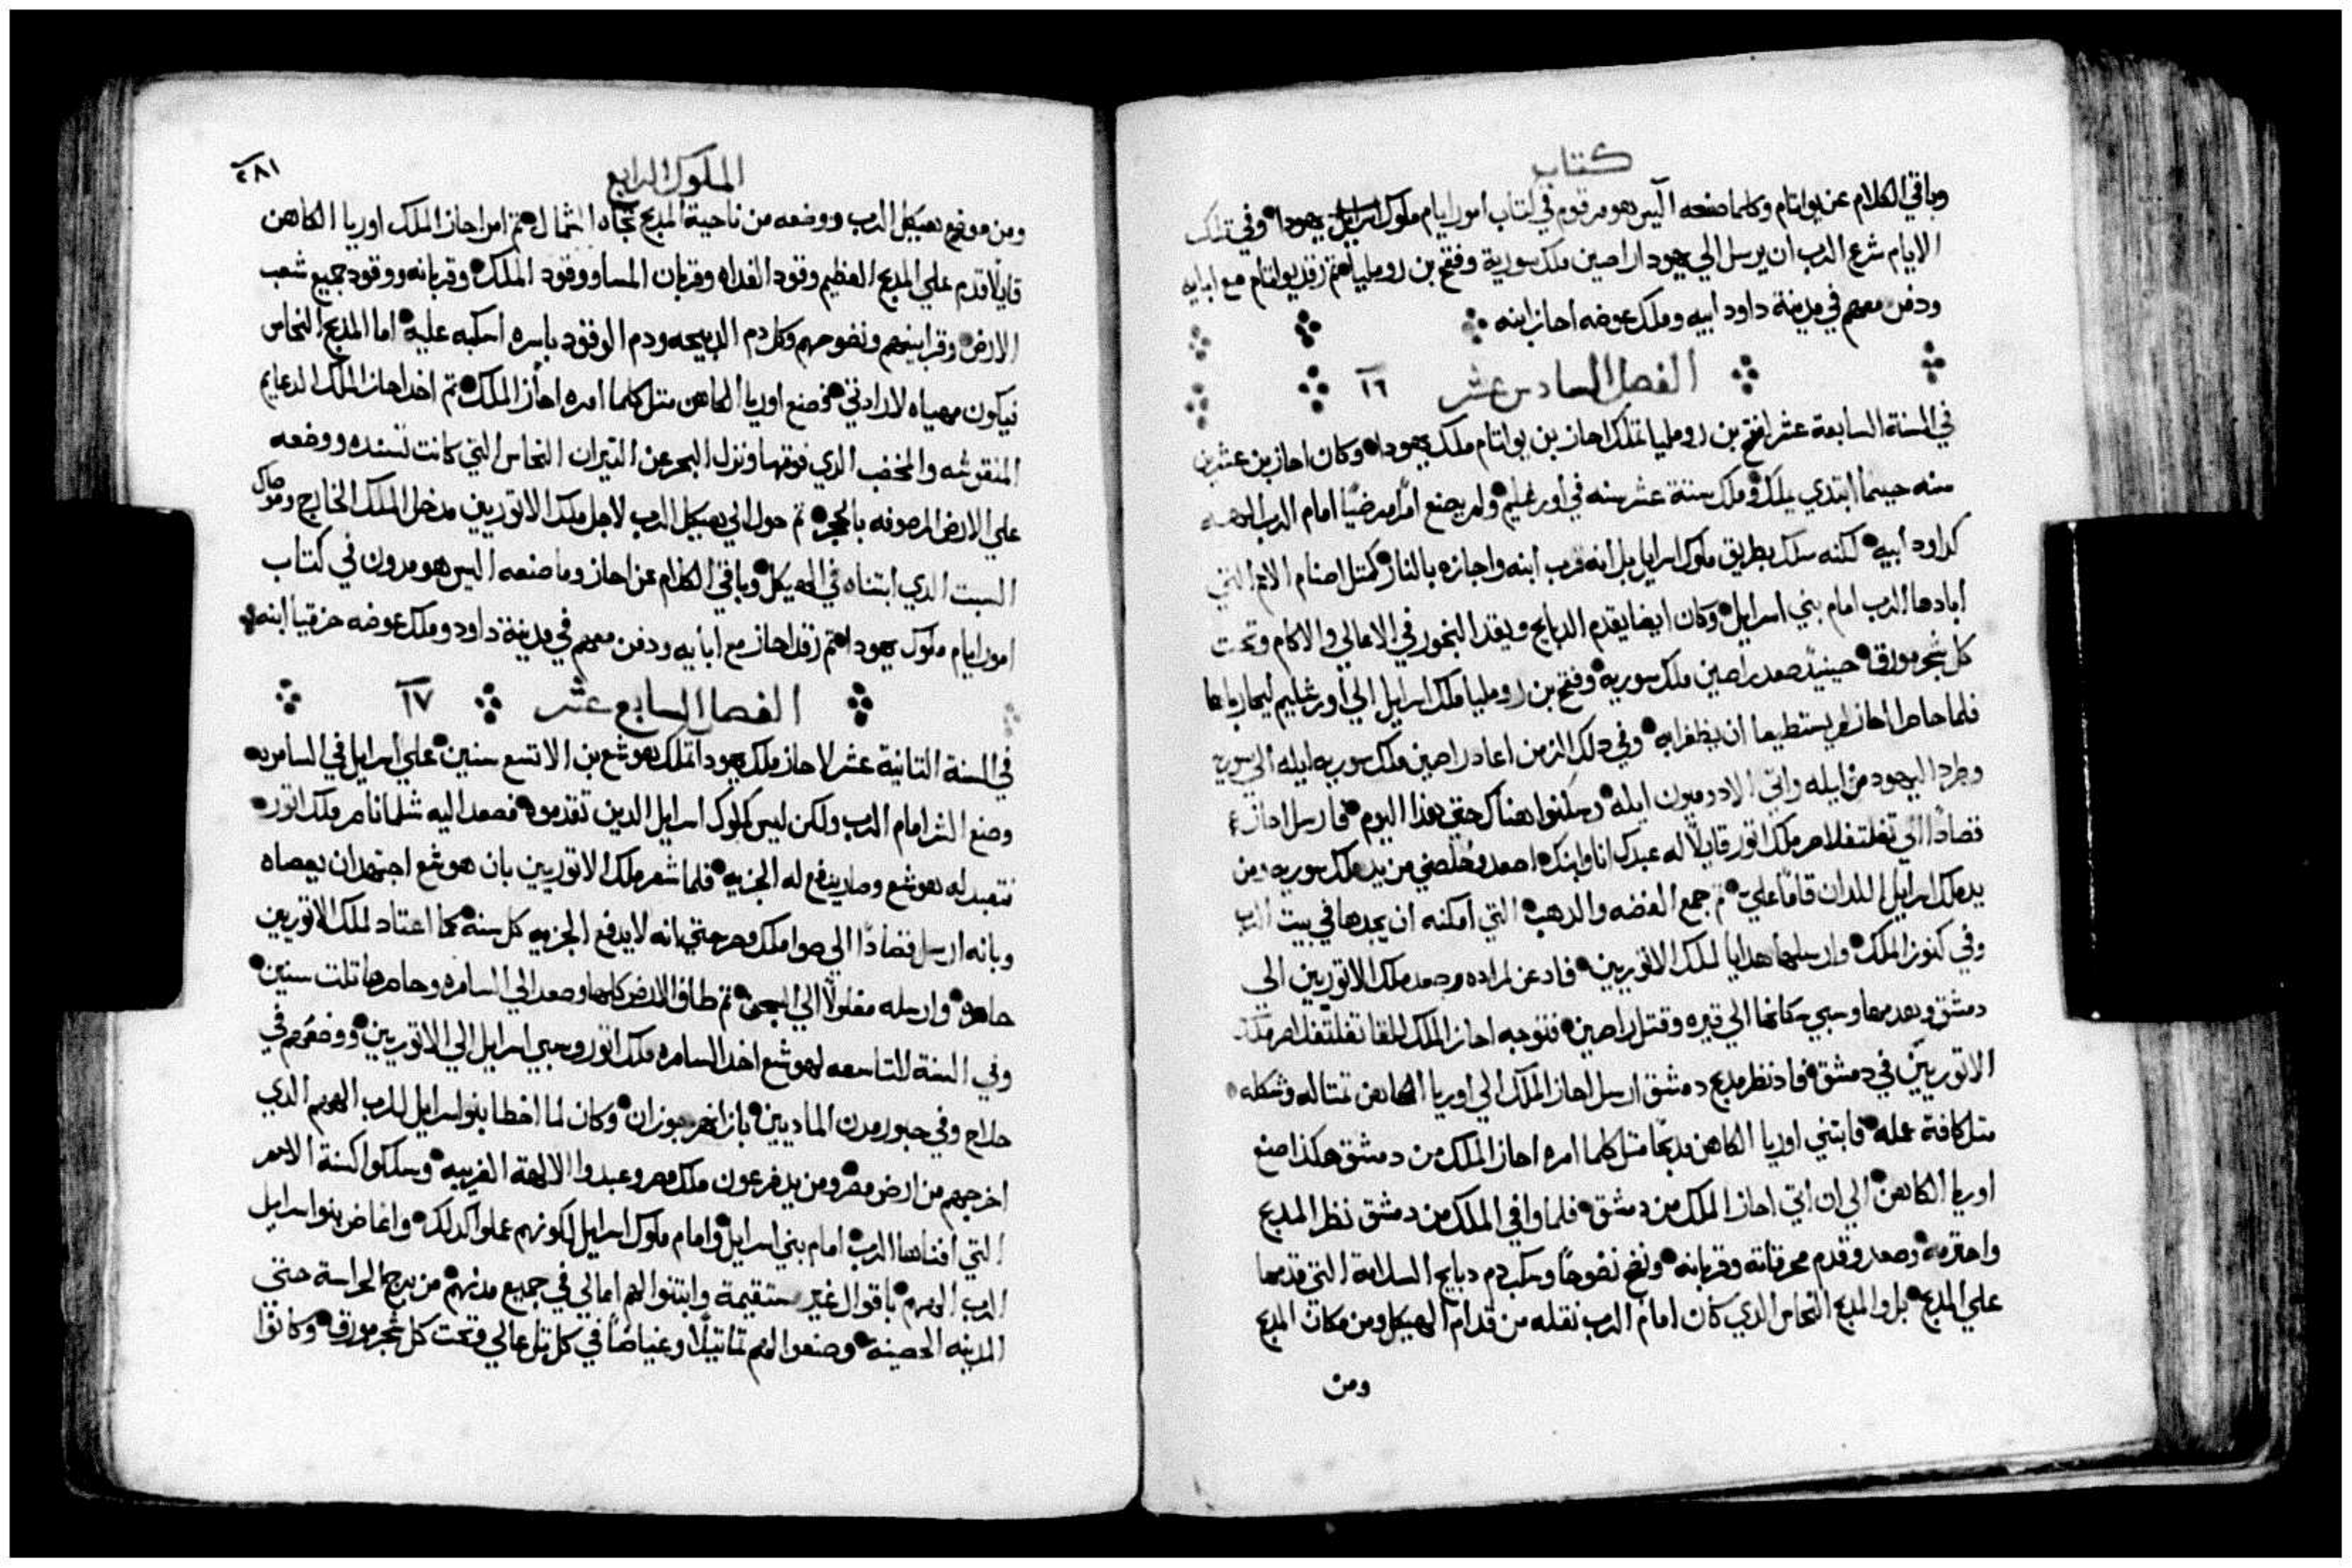 كتاب
وباقي الكلام عن يواتام وكلما صنعه اليس هو مرقوم في كتاب امور ايام ملوك اسرايل يهودا وفي تلك
الايام شرع الرب ان يرسل الي يهودا راصين ملك سورية وفقح بن روملياتم رقد يواتام مع ابايه
ودفن معهم في مدينة داود ابيه وملك عوضه احاز ابنه
الفصل السادس عشر ١٦
في السنة السابعة عشر لفقح بن رومليا تملك احاز بن يواتام ملك يهودا وكان احاز بن عشرين
سنه حينما ابتدي يملك وملك ستة عشر سنه في اورشليم ولم يصنع امرا مرضيا امام الرب الهه
كداود ابيه لكنه سلك بطريق ملوك اسرايل بل انه قرب ابنه واجازه بالنار كمتل اصنام الامم التي
ابادها الرب امام بني اسرايل وكان ايضا يقدم الدبايح ويقد البخور في الاعالي والاكام وتحت
كل شجر مورق حينيد صعد راصين ملك سوريه وفقح بن رومليا ملك اسرايل الي اورشليم ليحارباها
فلما حاصرا احاز لم يستطيعا ان يظفرا به وفي دلك الزمن اعاد راصين ملك سوريه ايله الي سوريه
وطرد اليهود من ايله واتي الادوميون ايله وسكنوا هناك حتي هذا اليوم فارسل احاز
قصادا الي تغلتفلاصر ملك اتور قايلا له عبدك انا وابنك اصعد وخلصني من يد ملك سوريه ومن
يد ملك اسرايل اللدان قاما علي تم جمع الفضه والدهب التي امكنه ان يجدها في بيت الرب
وفي كنوز الملك وارسلها هدايا لملك الاتوريين فادعن لمراده وصعد ملك الاتوريين الي
دمشق وهدمها وسبي سكانها الي قيره وقتل راصين فتوجه احاز الملك للقا تغلتفلاصر ملك
الاتوريين في دمشق فاد نظر مدبح دمشق ارسل احاز الملك الي اوريا الكاهن تمتاله وشكله
متل كافة عمله فابتني اوريا الكاهن مدبحا متل كلما امره احاز الملك من دمشق هكذا صنع
اوريا الكاهن الي ان اتي احاز الملك من دمشق فلما وافي الملك من دمشق نظر المدبح
واحترمه وصعد وقدم محرقاته وقربانه ونضح نضوحا وسكب دم دبايح السلامة التي قدمها
علي المدبح بل والمدبح النحاس الدي كان امام الرب نقله من قدام الهيكل ومن مكان المدبح
ومن
الملوك الرابع
٢٨١
ومن موضع هيكل الرب ووضعه من ناحية المدبح تجاه الشمال تم امر احاز الملك اوريا الكاهن
قايلا قدم علي المدبح العظيم وقود الغداه وقربان المسا ووقود الملك وقربانه ووقود جميع شعب
الارض وقرابينهم ونضوحهم وكل دم الدبيحه ودم الوقود باسره اسكبه عليه اما المدبح النحاس
فيكون مهياه لارادتي فصنع اوريا الكاهن متل كلما امره احاز الملك تم اخد احاز الملك الدعايم
المنقوشه والمخضب الدي فوقها ونزل البحر عن التيران النحاس التي كانت تسنده ووضعه
علي الارض المرصوفه بالحجر تم حول الي هيكل الرب لاجل ملك الاتوريين مدخل الملك الخارج وموصاك
السبت الدي ابتناه في الهيكل وباقي الكلام عن احاز وما صنعه اليس هو مدون في كتاب
امور ايام ملوك يهودا تم رقد احاز مع ابايه ودفن معهم في مدينة داود وملك عوضه حزقيا ابنه
الفصل السابع عشر ١٧
في السنة التانية عشر لاحاز ملك يهودا تملك هوشع بن الا تسع سنين علي اسرايل في السامره
وصنع الشر امام الرب ولكن ليس كملوك اسرايل الدين تقدموه فصعد اليه شلماناصر ملك اتور
فتعبد له هوشع وصار يدفع له الجزيه فلما شعر ملك الاتوريين بان هوشع اجتهد ان يعصاه
وبانه ارسل قصادا الي صوا ملك مصر حتي انه لا يدفع الجزيه كل سنه كما اعتاد لملك الاتوريين
حاصره وارسله مغلولا الي السجن تم طاف الارض كلها وصعد الي السامره وحاصرها تلت سنين
وفي السنة التاسعه لهوشع اخد السامره ملك اتور وسبي اسرايل الي الاتوريين ووضعهم في
حلاح وفي حبور مدن الماديين بازا نهر جوزان وكان لما اخطا بنو اسرايل للرب الههم الدي
اخرجهم من ارض مصر ومن يد فرعون ملك مصر وعبدوا الالهة الغريبه وسلكوا كسنة الامم
التي افناها الرب امام بني اسرايل وامام ملوك اسرايل لكونهم عملوا كدلك واغاض بنو اسرايل
الرب الههم باقوال غير مستقيمة وابتنوا لهم اعالي في جميع مدنهم من برج الحراسة حتي
المدينه الحصينه وصنعوا لهم تماتيلا وغياضا في كل تل عالي وتحت كل شجر مورق وكانوا